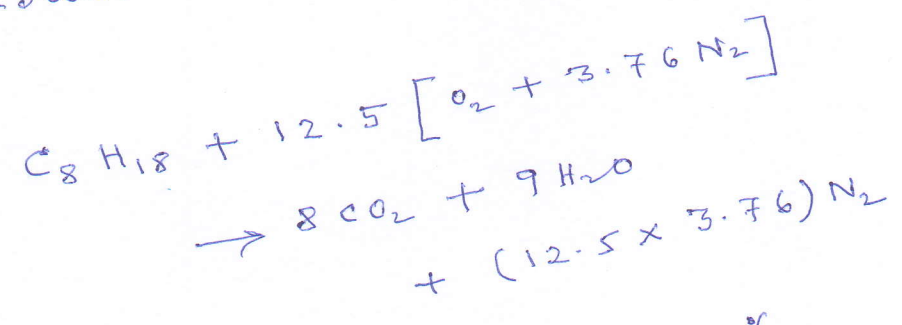 C₈H₁₈ + 12.5 [O₂ + 3.76 N₂]
→ 8 CO₂ + 9 H₂O
+ (12.5 × 3.76) N₂